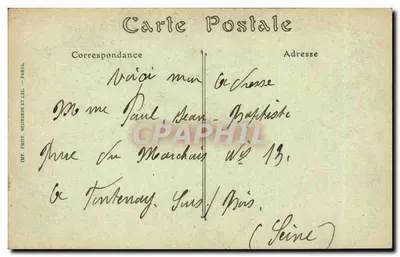 Carte Postale
Correspondance Adresse
Voici mon adresse
Mme Paul, Jean-Baptiste
rue du Marchais No 13.
a Fontenay Sous/Bois.
(Seine)
IMP. PHOT. NEURDEIN ET CIE. — PARIS.
DELCAMPE